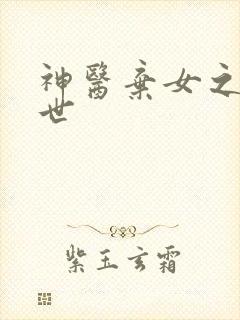 神醫棄女之
世
紫玉玄霜